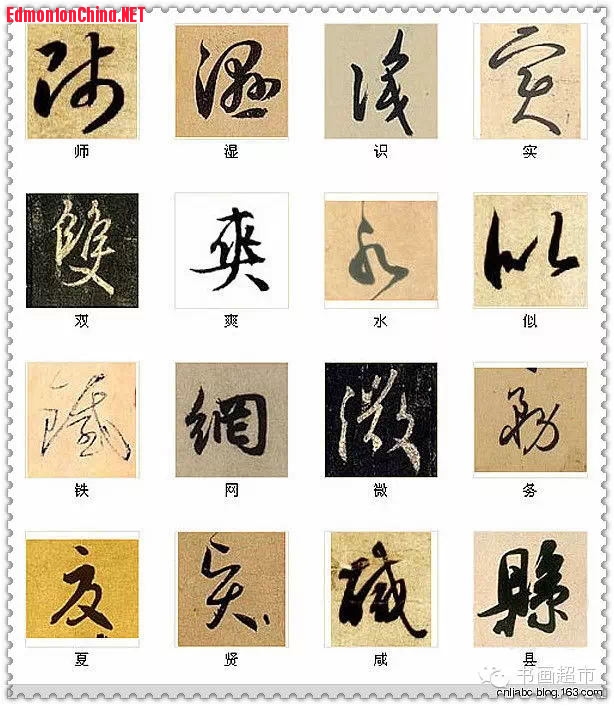 EdmontonChina.NET
师 湿 识 实
双 爽 水 似
铁 网 微 务
夏 贤 咸 县
书画超市
cnljabc.blog.163.com